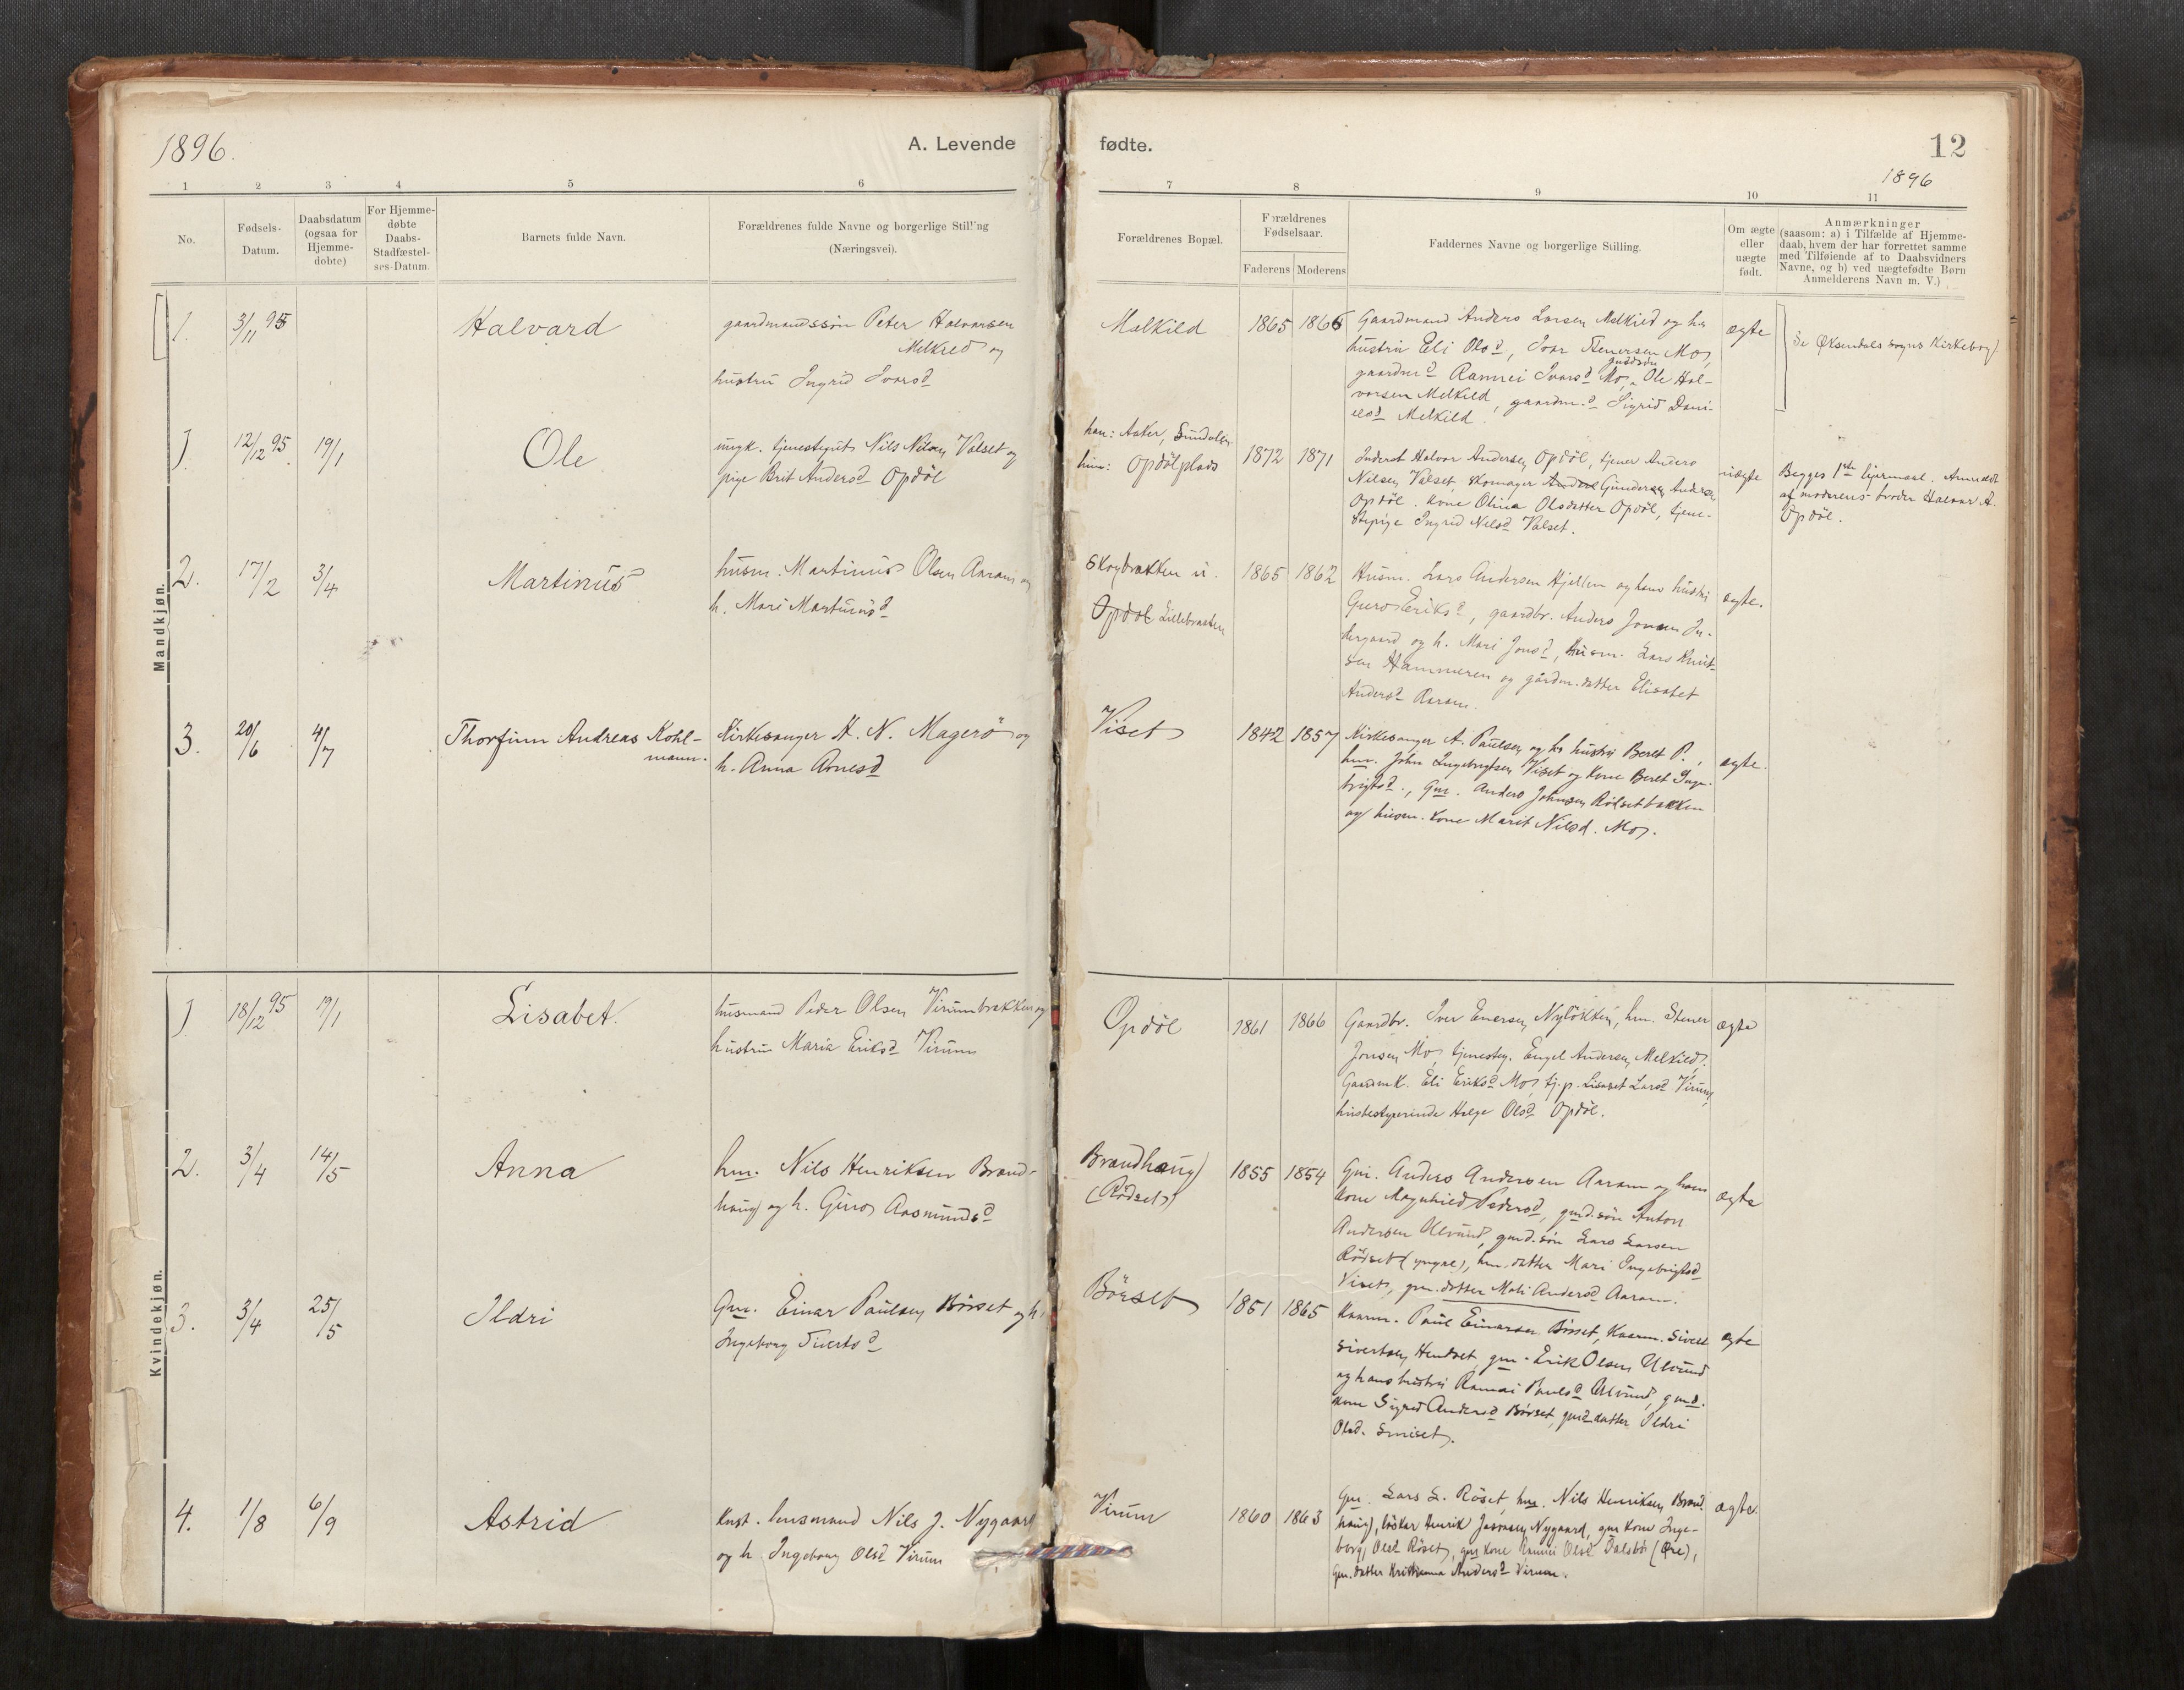 1896.
A. Levende
1 2 3 4 5 6
No.
Fødsels-
Datum.
Daabsdatum
(ogsaa for
Hjemme-
døbte)
For Hjemme-
døbte
Daabs-
Stadfæstel-
ses-Datum.
Barnets fulde Navn.
Forældrenes fulde Navne og borgerlige Stilling
(Næringsvei).
Mandkjøn.
1. 3/11 95 Halvard
gaardmandssøn Peter Halvorsen
Melkild og
hustru Ingrid Ivarsd
1 12/12 95. 19/1 Ole
ungk. tjenestegut Nils Nilsen Valset og
pige Brit Andersd Opdöl
2. 17/2 3/4 Martinus
husm. Martinus Olsen Aaram og
h. Mari Martinusd
3. 20/6 4/7 Thorfinn Andreas Kohl-
mann.
Kirkesanger H. N. Magerö og
h. Anna Arnesd
Kvindekjøn.
1 18/12 95 19/1 Lisabet.
husmand Peder Olsen Virumbrækken og
hustru Maria Eriksd Virum
2. 3/4 14/5 Anna
hm. Nils Henriksen Brand-
haug og h. Guro Aasmundsd
3. 3/4 25/5 Ildri
Gm. Einar Paulsen Börset og h.
Ingeborg Sivertsd
4. 1/8 6/9 Astrid
Kust. lensmand Nils J. Nygaard
og h. Ingeborg Olsd Virum
fødte.
12
1896
7 8 9 10 11
Forældrenes Bopæl.
Forældrenes
Fødselsaar.
Faderens Moderens
Faddernes Navne og borgerlige Stilling.
Om ægte
eller
uægte
født.
Anmærkninger
(saasom: a) i Tilfælde af Hjemme-
daab, hvem der har forrettet samme
med Tilføiende af to Daabsvidners
Navne, og b) ved uægtefødte Børn
Anmelderens Navn m. V.)
Melkild 1865 1866
Gaardmand Anders Larsen Melkild og hs
hustru Eli Olsd, Ivar Stenersen Mo,
gaardmd Ramnei Ivarsd Mo, Ole Hal-
vorsen Melkild, gaardm.d Sigrid Dani-
elsd Melkild.
ægte
Se Øksendals sogns Kirkebog.
han: Aaker, Sundalen
hun: Opdölplads
1872 1871
Inderst Halvor Andersen Opdöl, tjener Anders
Nilsen Valset, skomager Gunder Andersen
Opdöl. kone Olina Olsdatter Opdöl, tjene-
stepige Ingrid Nilsd Valset.
uægte
Begges 1ste leiermaal. Anmeldt
af moderens broder Halvor A.
Opdöl.
Skogbrækken u.
Opdöl Lillebrækken
1865 1862
Husm. Lars Andersen Hjellen og hans hustru
Guro Eriksd, gaardbr. Anders Jonsen In-
dergaard og h. Mari Jonsd, husm. Lars Knut-
sen Hammeren og gårdm.datter Elisabet
Andersd Aaram.
ægte.
Viset 1842 1857
Kirkesanger A. Paulsen og hs hustru Beret P.,
hm. John Ingebrigtsen Viset og Kone Beret Inge-
brigtsd., Gm. Anders Johnsen Rödsetbakken
og husm. kone Marit Nilsd. Mo.
ægte.
Opdöl 1861 1866
Gaardbr. Iver Enersen Nylökken, hm. Stener
Jonsen Mo, tjenesteg. Engel Andersen Melkild,
Gaardmk. Eli Eriksd Mo, tj.p. Lisabet Larsd Virum,
husbestyrerinde Helge Olsd Opdöl.
ægte
Brandhaug
(Rödset)
1855 1854
Gm. Anders Andersen Aaram og hans
kone Magnhild Pedersd, gmd.sön Anton
Andersen Ulvund, gmd.sön Lars Larsen
Rödset (yngre), hm.datter Mari Ingebrigtsd
Viset, gm.datter Mali Andersd Aaram.
ægte
Börset 1851 1865
Kaarm. Paul Einarsen Börset, Kaarm. Sivert
Sivertsen Hendset, gm. Erik Olsen Ulvund
og hans hustru Ramnei Paulsd Ulvund, gmd.
kone Sigrid Andersd Börset, gmd datter Ildri
Olsd. Smiset.
ægte
Virum 1860 1863
Gm. Lars L. Röset, hm. Nils Henriksen Brand-
haug, lösker Henrik Nygaard, gm kone Inge-
borg Olsd Röset, gm kone Ramnei Olsd Dalsbö (Øre),
Gm.datter Kristianna Andersd Virum.
ægte.